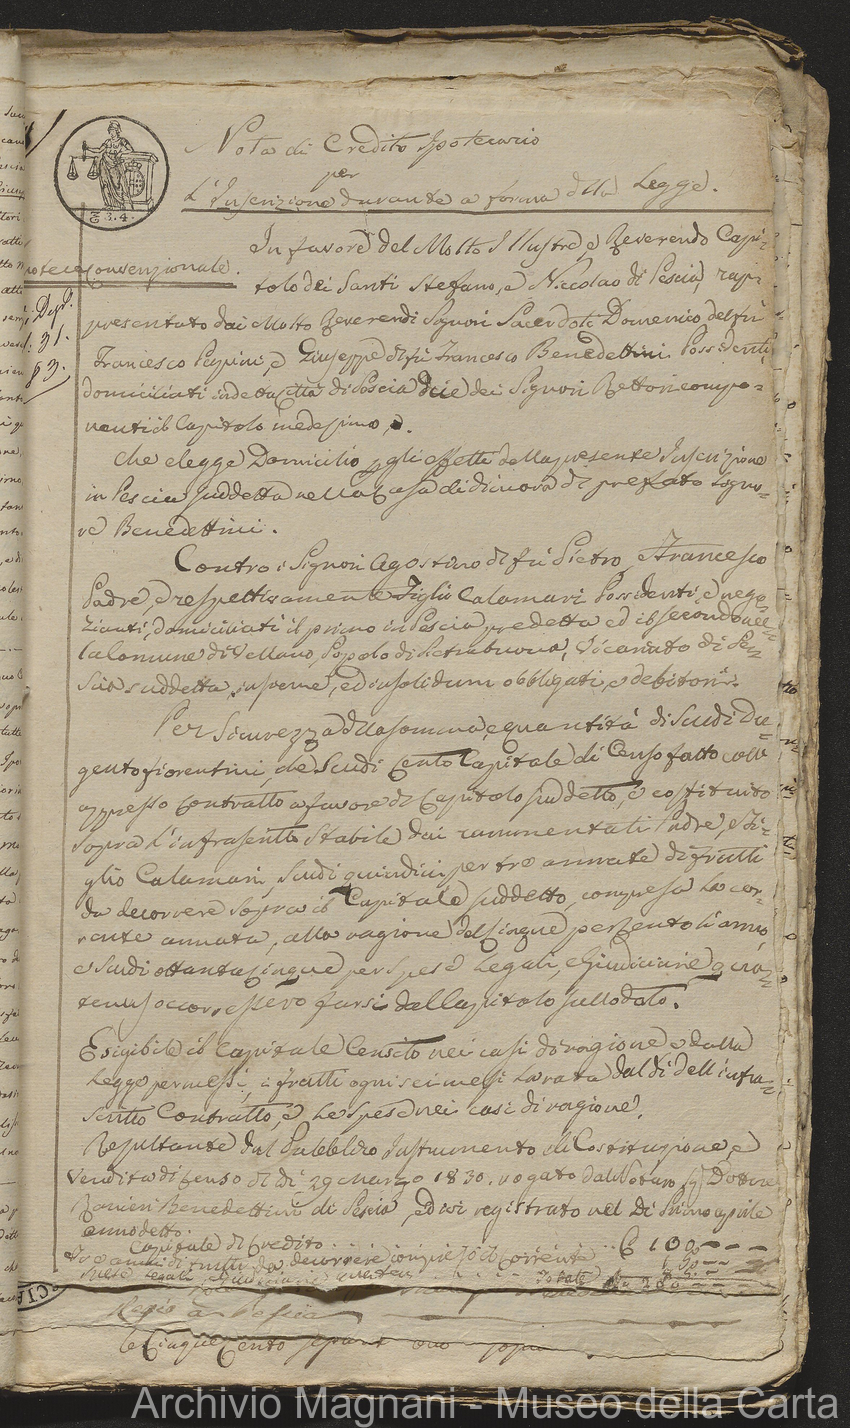 Nota di Credito Ipotecario
per
L'Inscrizione durante a forma della Legge.
3.4.
In favore del Molto Illustre, e Reverendo Capi-
Convenzionale.
tolo dei Santi Stefano, e Niccolao di Pescia, rap-
Dep.
presentato dai Molto Reverendi Signori Sacerdoti Domenico del fu
31.
Francesco Papini, e Giuseppe di fu Francesco Benedettini Possidenti
93.
domiciliati in detta Città di Pescia due dei Signori Rettori compo-
nenti il Capitolo medesimo, e.
Che elegge Domicilio p gli effetti della presente Inscrizione
in Pescia suddetta nella Casa di dimora di prefato Signo-
re Benedettini.
Contro i Signori Agostino di fu Pietro, e Francesco
Padre, e respettivamente Figlio Calamari Possidenti, e nego-
zianti, domiciliati il primo in Pescia predetta ed il secondo nel-
la Comune di Vellano, Popolo di Pietrabuona, Vicariato di Pe-
scia suddetta, insieme, ed insolidum obbligati, e debitori.
Per Sicurezza della somma, e quantità di Scudi Du-
gento fiorentini, che Scudi Cento Capitale di Censo fatto coll'
appresso Contratto a favore di Capitolo suddetto, e costituito
sopra l'infrascritto Stabile dai rammentati Padre, e Fi-
glio Calamari, Scudi quindici per tre annate di frutti
da decorrere sopra il Capitale suddetto, compresa la cor-
rente annata, alla ragione del cinque per Cento l'anno,
e Scudi ottantacinque per Spese Legali, e Giudiciarie qua-
tenus occorressero farsi dal Capitolo sullodato.
Esigibile il Capitale Censito nei casi di ragione e dalla
Legge permessi, i frutti ogni sei mesi la rata dal dì dell'infra-
scritto Contratto, e Le Spese nei casi di ragione.
Resultante dal Pubblico Instrumento di Costituzione, e
Vendita di Censo di dì 29 Marzo 1830. rogato dal Notaro Sig Dottore
Ranieri Benedettini di Pescia, ed ivi registrato nel dì Primo aprile
anno detto.
Capitale di Credito ... 100
Tre annate di frutti da decorrere compresa la corrente
Spese Legali
Totale 200
Regio a Pescia
Cinque Cento
Archivio Magnani - Museo della Carta